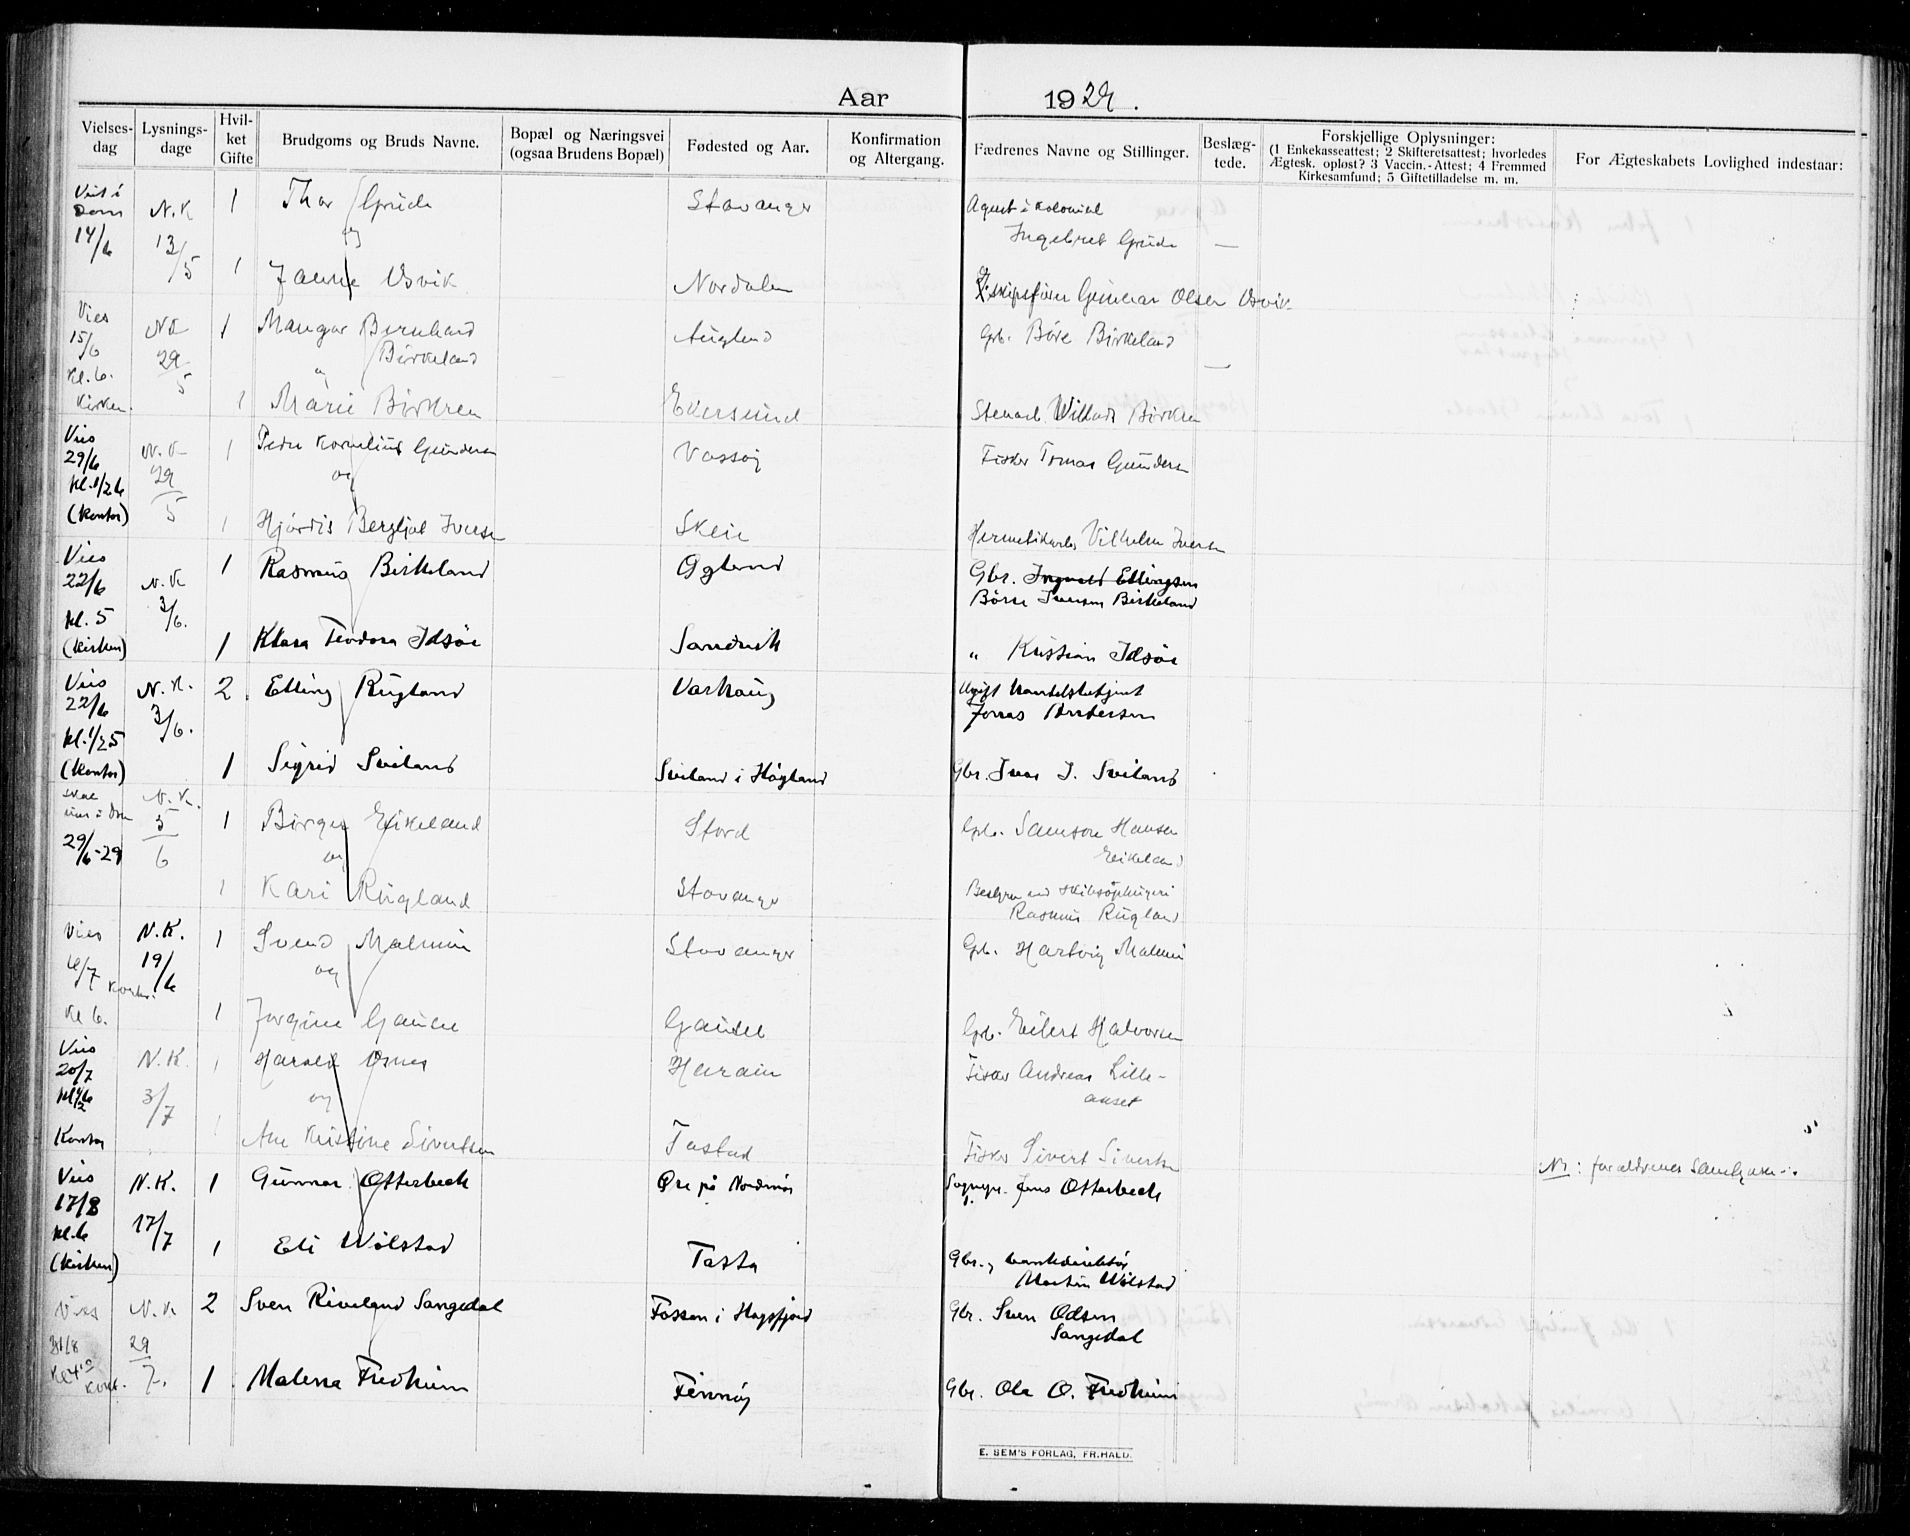 Aar 1929.
Vielses-dag
Lysnings-dage
Hvil-ket Gifte
Brudgoms og Bruds Navne.
Bopæl og Næringsvei (ogsaa Brudens Bopæl)
Fødested og Aar.
Konfirmation og Altergang.
Fædrenes Navne og Stillinger.
Beslæg-tede.
Forskjellige Oplysninger:
(1 Enkekasseattest; 2 Skifteretsattest; hvorledes
Ægtesk. opløst? 3 Vaccin.-Attest; 4 Fremmed
Kirkesamfund; 5 Giftetilladelse m. m.
For Ægteskabets Lovlighed indestaar:
Viet i Dom 14/6 N.K 13/5 1 Thor Grude Stavanger Agent i Kolonial
og Ingebret Grude —
1 Janne Osvik Nordalen skipsfører Gunnar Olsen Osvik
Vies 15/6 Kl. 6. Kirken. N.K 29/5 1 Mangor Bernhard Augland Grb. Børe Birkeland
Birkeland —
1 Marie Birkren Ekersund Stenarb. Willads Birkren
Vies 29/6 Kl. 1/2 6 (Kontor) N.K 29/5 1 Peder Kornelius Gundersen Vassøy Fisker Tomas Gundersen
og
1 Hjørdis Bergljot Iversen Skeie Hermetikarb. Vilhelm Iversen
Vies 22/6 Kl. 5 (Kirken) N.K 3/6. 1 Rasmus Birkeland Ogland Gbr. Ingvald Ellingsen
Børe Iversen Birkeland
1 Klara Teodora Idsøe Sandvik " Kristian Idsøe
Vies 22/6 Kl. 1/2 5 (Kontor) N.K. 3/6. 2. Elling Rugland Varhaug Ugift handelsbetjent
Jonas Andersen
1 Sigrid Sviland Sviland i Høyland Gbr. Ivar I. Sviland
29/6-29 N.K. 5/6 1 Birger Eikeland Stord Grb. Samson Hansen
og Eikeland
1 Kari Rugland Stavanger Bestyrer ved
Rasmus Rugland
Vies 6/7 Kontor. Kl 6. N.K. 19/6 1 Svend Malmin Stavanger Grb. Hartvig Malmin
og
1 Jorgine Gausel Gausel Grb. Eilert Halvorsen
Vies 20/7 Kl 1/2 6 Kontor N.K. 3/7 1 Harald Osnes Haram Fisker Andreas Lille-
og
1 Ane Kristine Sivertsen Tastad Fisker Sivert Sivertsen
Vies 17/8 Kl. 6 (Kirken) N.K. 17/7 1 Gunnar Otterbeck Øre på Nordmør Sognepr. Jens Otterbeck
NB: forældrenes samtykke
1 Eli Wølstad Tasta Gbr., bankdirektør
Martin Wølstad
Vies 31/8 N.K 29/7. 2 Sven Riveland Sangedal Fossan i Høgsfjord Gbr. Sven Odsen
Sangedal
1 Malena Fredheim Finnøy Gbr. Ole O. Fredheim
E. SEM'S FORLAG, FR.HALD.